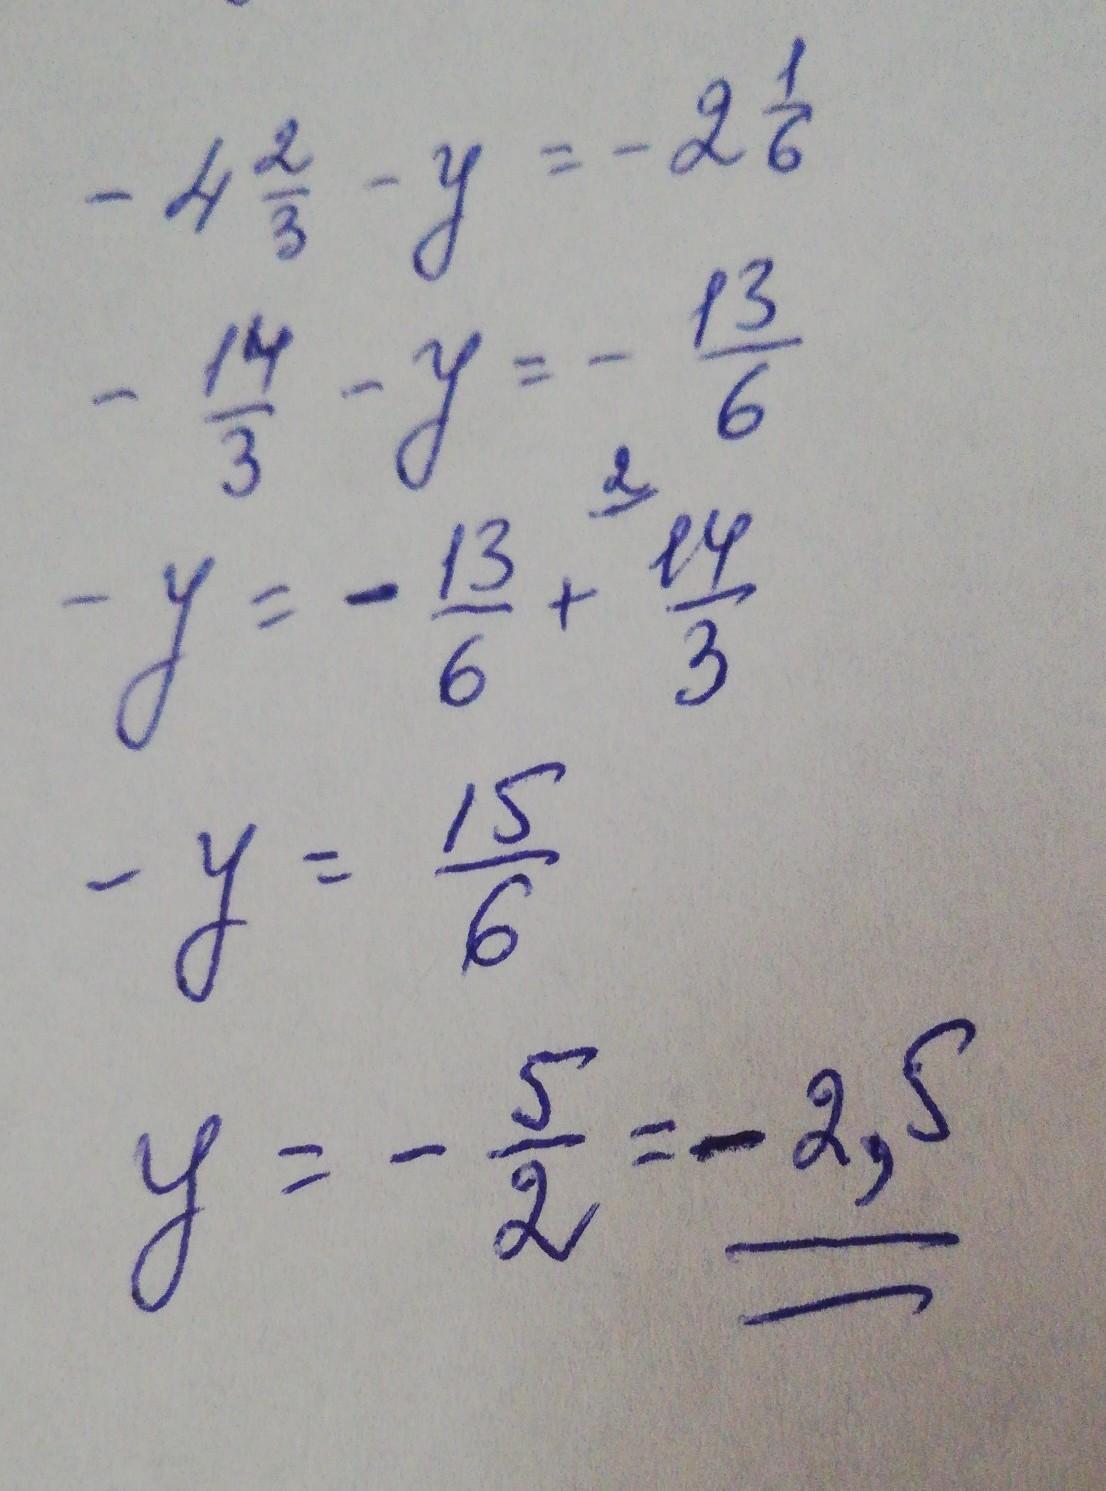 -4 2/3 - y = -2 1/6
- 14/3 - y = - 13/6
- y = - 13/6 + 2 14/3
- y = 15/6
y = - 5/2 = -2,5